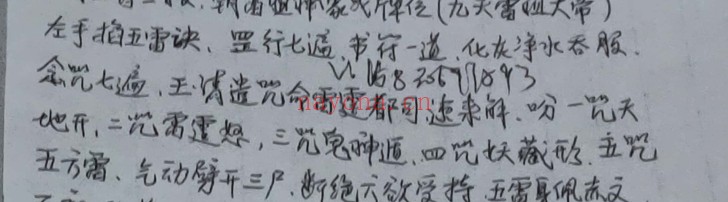 朝雷祖神家或牌位(九天雷祖大帝)
左手掐五雷诀、罡行七遍、书符一道、化灰净水吞服.
念咒七遍、玉清造咒命雷霆都司速来解、吩一咒天
nayona.cn
地开、二咒雷霆怒、三咒鬼神遁、四咒妖藏形、五咒
五方雷、气动劈开三尸、断绝六欲受持 五雷身佩赤文